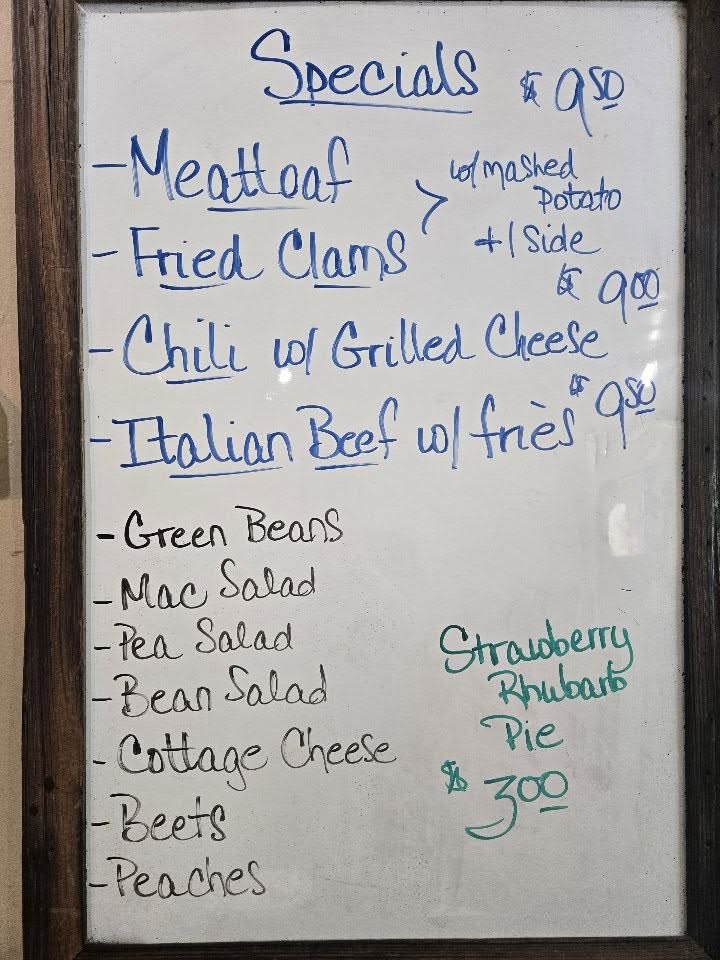 Specials $9.50
- Meatloaf
> w/ mashed
Potato
+ 1 Side
- Fried Clams
$9.00
- Chili w/ Grilled Cheese
- Italian Beef w/ friès $9.50
- Green Beans
- Mac Salad
- Pea Salad
- Bean Salad
- Cottage Cheese
- Beets
- Peaches
Strawberry
Rhubarb
Pie
$3.00